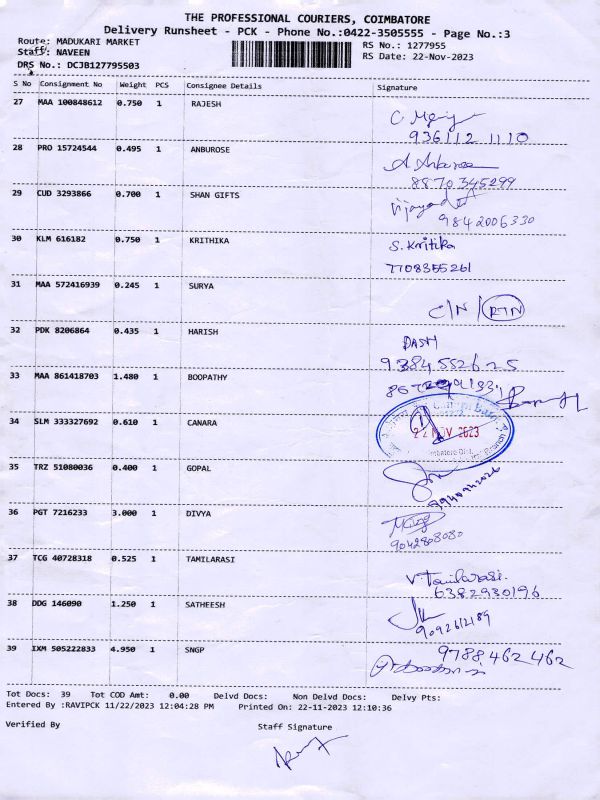 THE PROFESSIONAL COURIERS, COIMBATORE
Delivery Runsheet - PCK - Phone No.:0422-3505555 - Page No.:3
Route: MADUKARI MARKET
RS No.: 1277955
Staff: NAVEEN
RS Date: 22-Nov-2023
DRS No.: DCJB127795503
S No Consignment No Weight PCS Consignee Details Signature
27 MAA 100848612 0.750 1 RAJESH
936112 1110
28 PRO 15724544 0.495 1 ANBUROSE
8870345299
29 CUD 3293866 0.700 1 SHAN GIFTS
9842006330
30 KLM 616182 0.750 1 KRITHIKA S. Kritika
7708355261
31 MAA 572416939 0.245 1 SURYA
C/N / RTN
32 PDK 8206864 0.435 1 HARISH DASH
9384552625
33 MAA 861418703 1.480 1 BOOPATHY
34 SLM 333327692 0.610 1 CANARA
22 NOV 2023
35 TRZ 51080036 0.400 1 GOPAL
36 PGT 7216233 3.000 1 DIVYA
9042808080
37 TCG 40728318 0.525 1 TAMILARASI
V. Tamilarasi.
6382930196
38 DDG 146090 1.250 1 SATHEESH
9092612189
39 IXM 505222833 4.950 1 SNGP 9788462462
Tot Docs: 39 Tot COD Amt: 0.00 Delvd Docs: Non Delvd Docs: Delvy Pts:
Entered By :RAVIPCK 11/22/2023 12:04:28 PM Printed On: 22-11-2023 12:10:36
Verified By Staff Signature